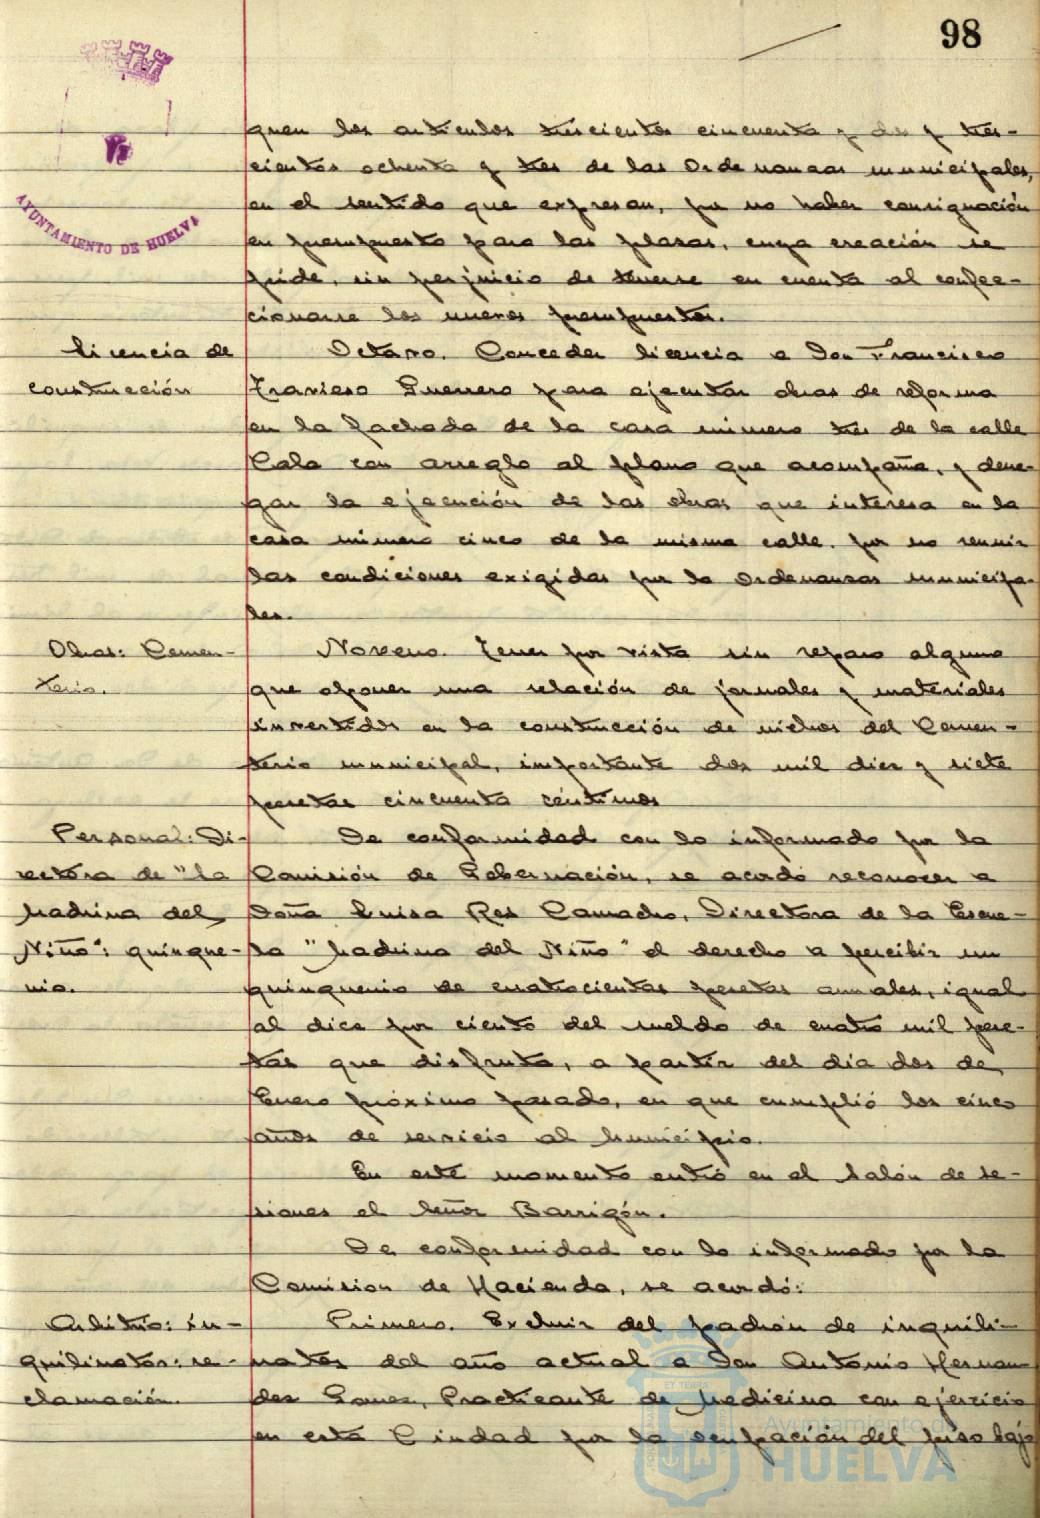 98
AYUNTAMIENTO DE HUELVA
quen los artículos trescientos cincuenta y dos y tres-
cientos ochenta y tres de las Ordenanzas municipales,
en el sentido que expresan, por no haber consignación
en presupuesto para las plazas, cuya creación se
pide, sin perjuicio de tenerse en cuenta al confec-
cionarse los nuevos presupuestos.
Licencia de
construcción
Octavo. Conceder licencia a Don Francisco
Travieso Guerrero para ejecutar obras de reforma
en la fachada de la casa número tres de la calle
Cala con arreglo al plano que acompaña, y dene-
gar la ejecución de las obras que interesa en la
casa número cinco de la misma calle, por no reunir
las condiciones exigidas por la Ordenanzas municipa-
les.
Obras: Cemen-
terio.
Noveno. Tener por vista sin reparo alguno
que oponer una relación de jornales y materiales
invertidos en la construcción de nichos del Cemen-
terio municipal, importante dos mil diez y siete
pesetas cincuenta céntimos
Personal: Di-
rectora de "La
Madrina del
Niño": quinque-
nio.
De conformidad con lo informado por la
Comisión de Gobernación, se acordó reconocer a
Doña Luisa Rey Camacho, Directora de la Escue-
la "Madrina del Niño" el derecho a percibir un
quinquenio de cuatrocientas pesetas anuales, igual
al diez por ciento del sueldo de cuatro mil pese-
tas que disfruta, a partir del día dos de
Enero próximo pasado, en que cumplió los cinco
años de servicio al Municipio.
En este momento entró en el Salón de se-
siones el Señor Barrigón.
De conformidad con lo informado por la
Comision de Hacienda, se acordó:
Arbitrio: in-
quilinatos: re-
clamación.
Primero. Excluir del padrón de inquili-
natos del año actual a Don Antonio Hernan
dez Gomez, Practicante de Medicina con ejercicio
en esta Ciudad por la ocupación del piso bajo
Ayuntamiento de
HUELVA